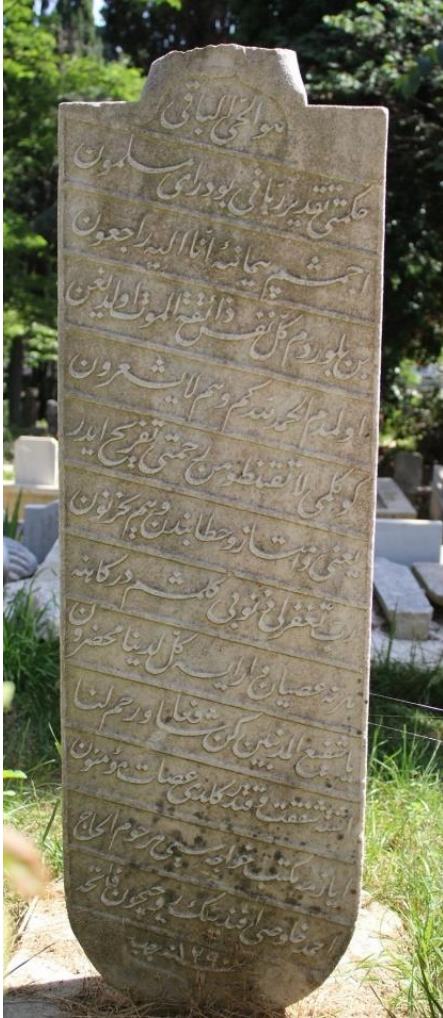 هو الحی الباقی
حکمتی تقدیر ربانی بودر ای مسلمون
اجمشم پیمانهٔ انا الیه راجعون
بن بلوردم کل نفس ذائقة الموت اولدیغن
اولدم الحمد لله کم وهم لا یشعرون
کوکلمی لا تقنطو من رحمتی تفریح ایدر
یعنی وامتازو خطابندن وهم یحزنون
رب تغفر لی ذنوبی کلمشم درکاهنه
هر نه عصیان ایسه کل لدینا محضرون
یا شفیع المذنبین کن شافعا وارحم لنا
شفقت وقتی کلدی عصات مؤمنون
مکتب خواجه سی مرحوم الحاج
احمد خلوصی افندینك روحیچون فاتحه
سنه ١٢٩٠